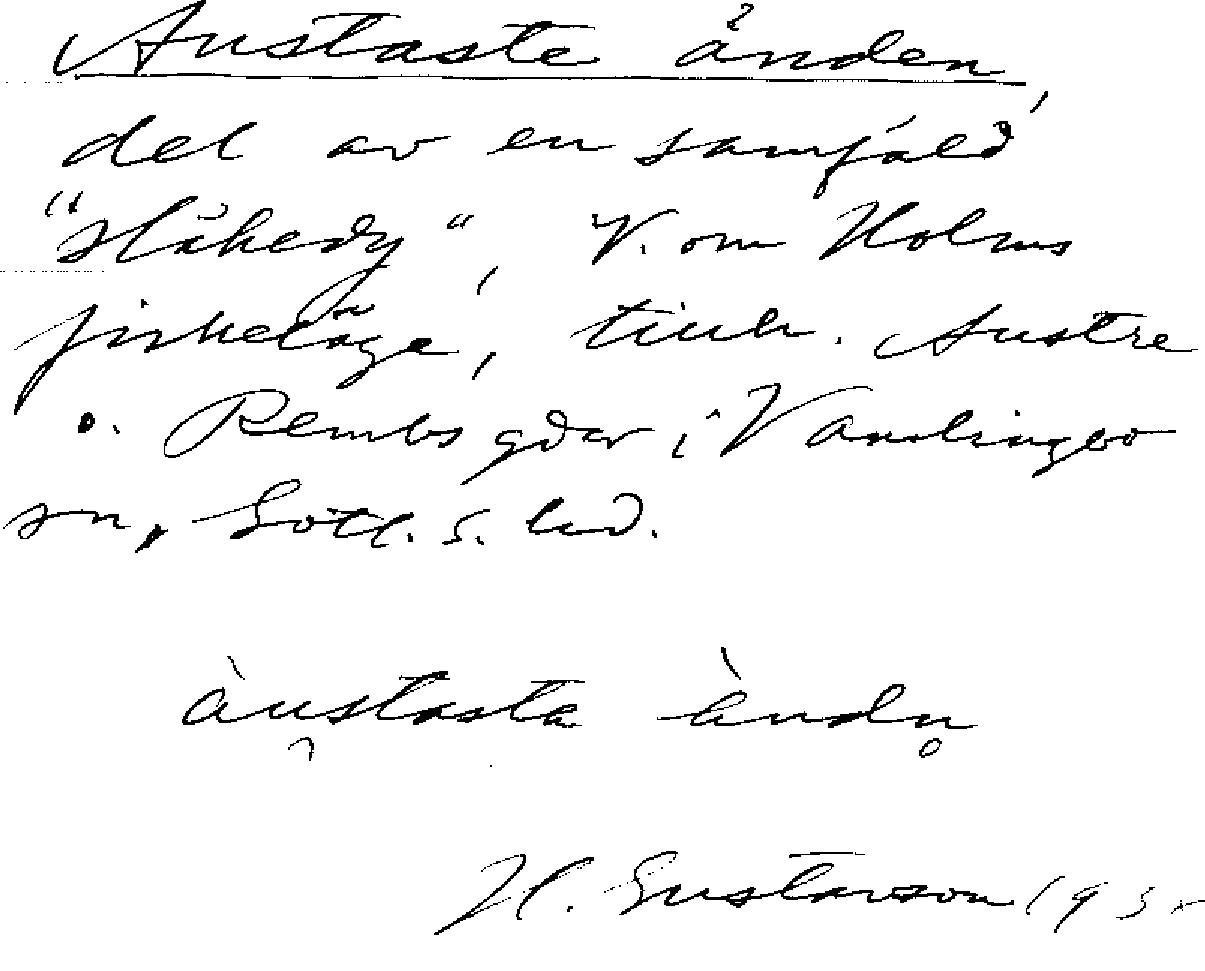 Austaste änden,
del av en samfäld
"slåkedy", V. om Holms
fiskeläge, tillh. Austre
o. Rembs gdar i Vamlingbo
sn, Gotl. s. hd.
àustasta àndn
H. Gustavson 195